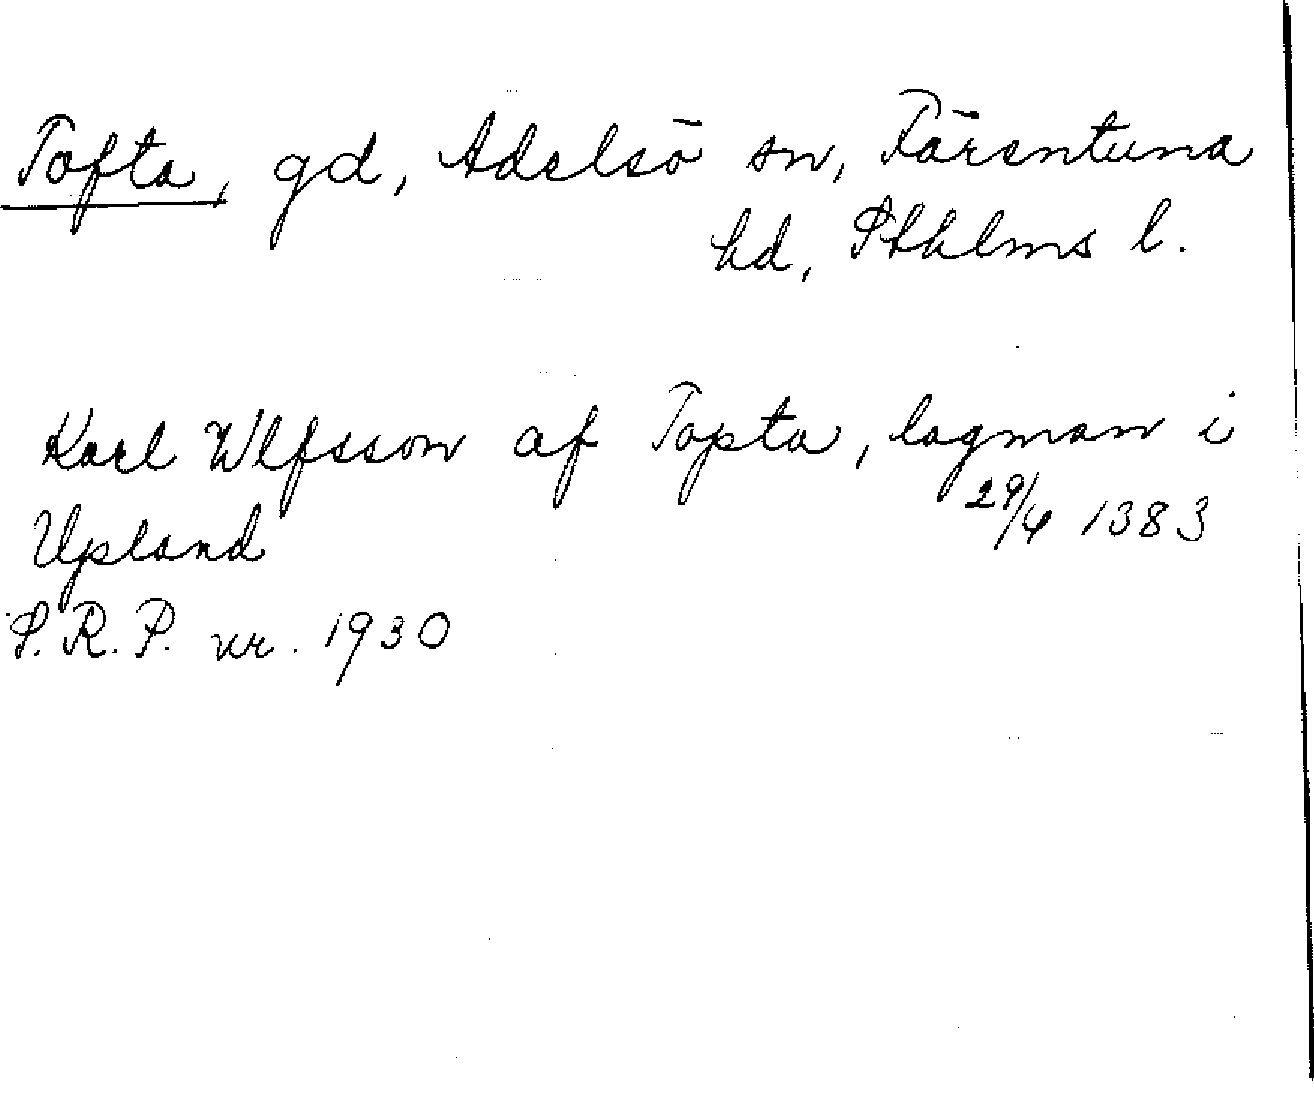 Tofta, gd, Adelsö sn, Färentuna
hd, Sthlms l.
Karl Wlfsson af Topta, lagman i
Upland 29/4 1383
S.R.P. nr. 1930